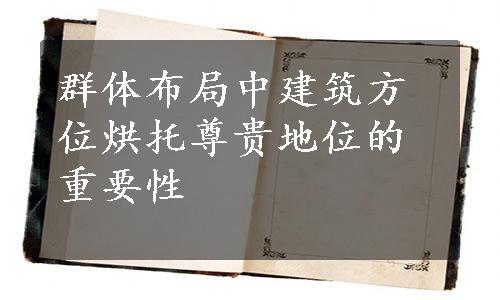 群体布局中建筑方
位烘托尊贵地位的
重要性